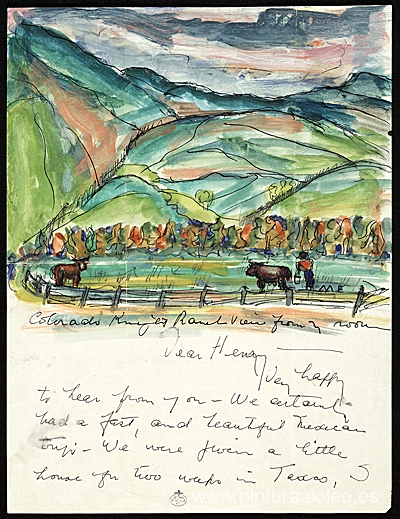 Colorado Ranch View from my room
Dear Henry —
Very happy
to hear from you — We certainly
had a fast, and beautiful Mexican
trip — We were given a little
house for two weeks in Taxco,
www.pinturaaloleo.es